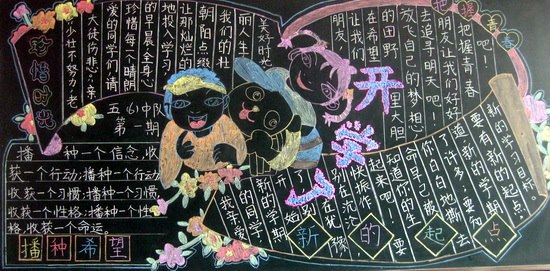 珍惜时光
少壮不努力,老
大徒伤悲。亲
爱的同学们,请
珍惜每个晴朗
的早晨全身心
地投入学习,
让那灿烂的
朝阳点缀
我们的
丽人生
美好时光
五(6)中队
第一期
播种一个信念,收
获一个行动;播种一个行动
收获一个习惯;播种一个习惯
收获一个性格;播种一个性
格收获一个命运。
播种希望
开学了
把握青春
朋友,
让我们
在希望
的田野
里大胆
放飞自己的梦想
去追寻明天吧!
朋友让我们好好
把握青春
吧!
我亲爱
的同学
新的学期
开始了
别在犹豫
别在沉沦
快振作
起来吧!要
知道你的生
命自己被
白白地撕去
了许多;要知
道新的学期
要有新的起点
新的学习目标。
新的起点